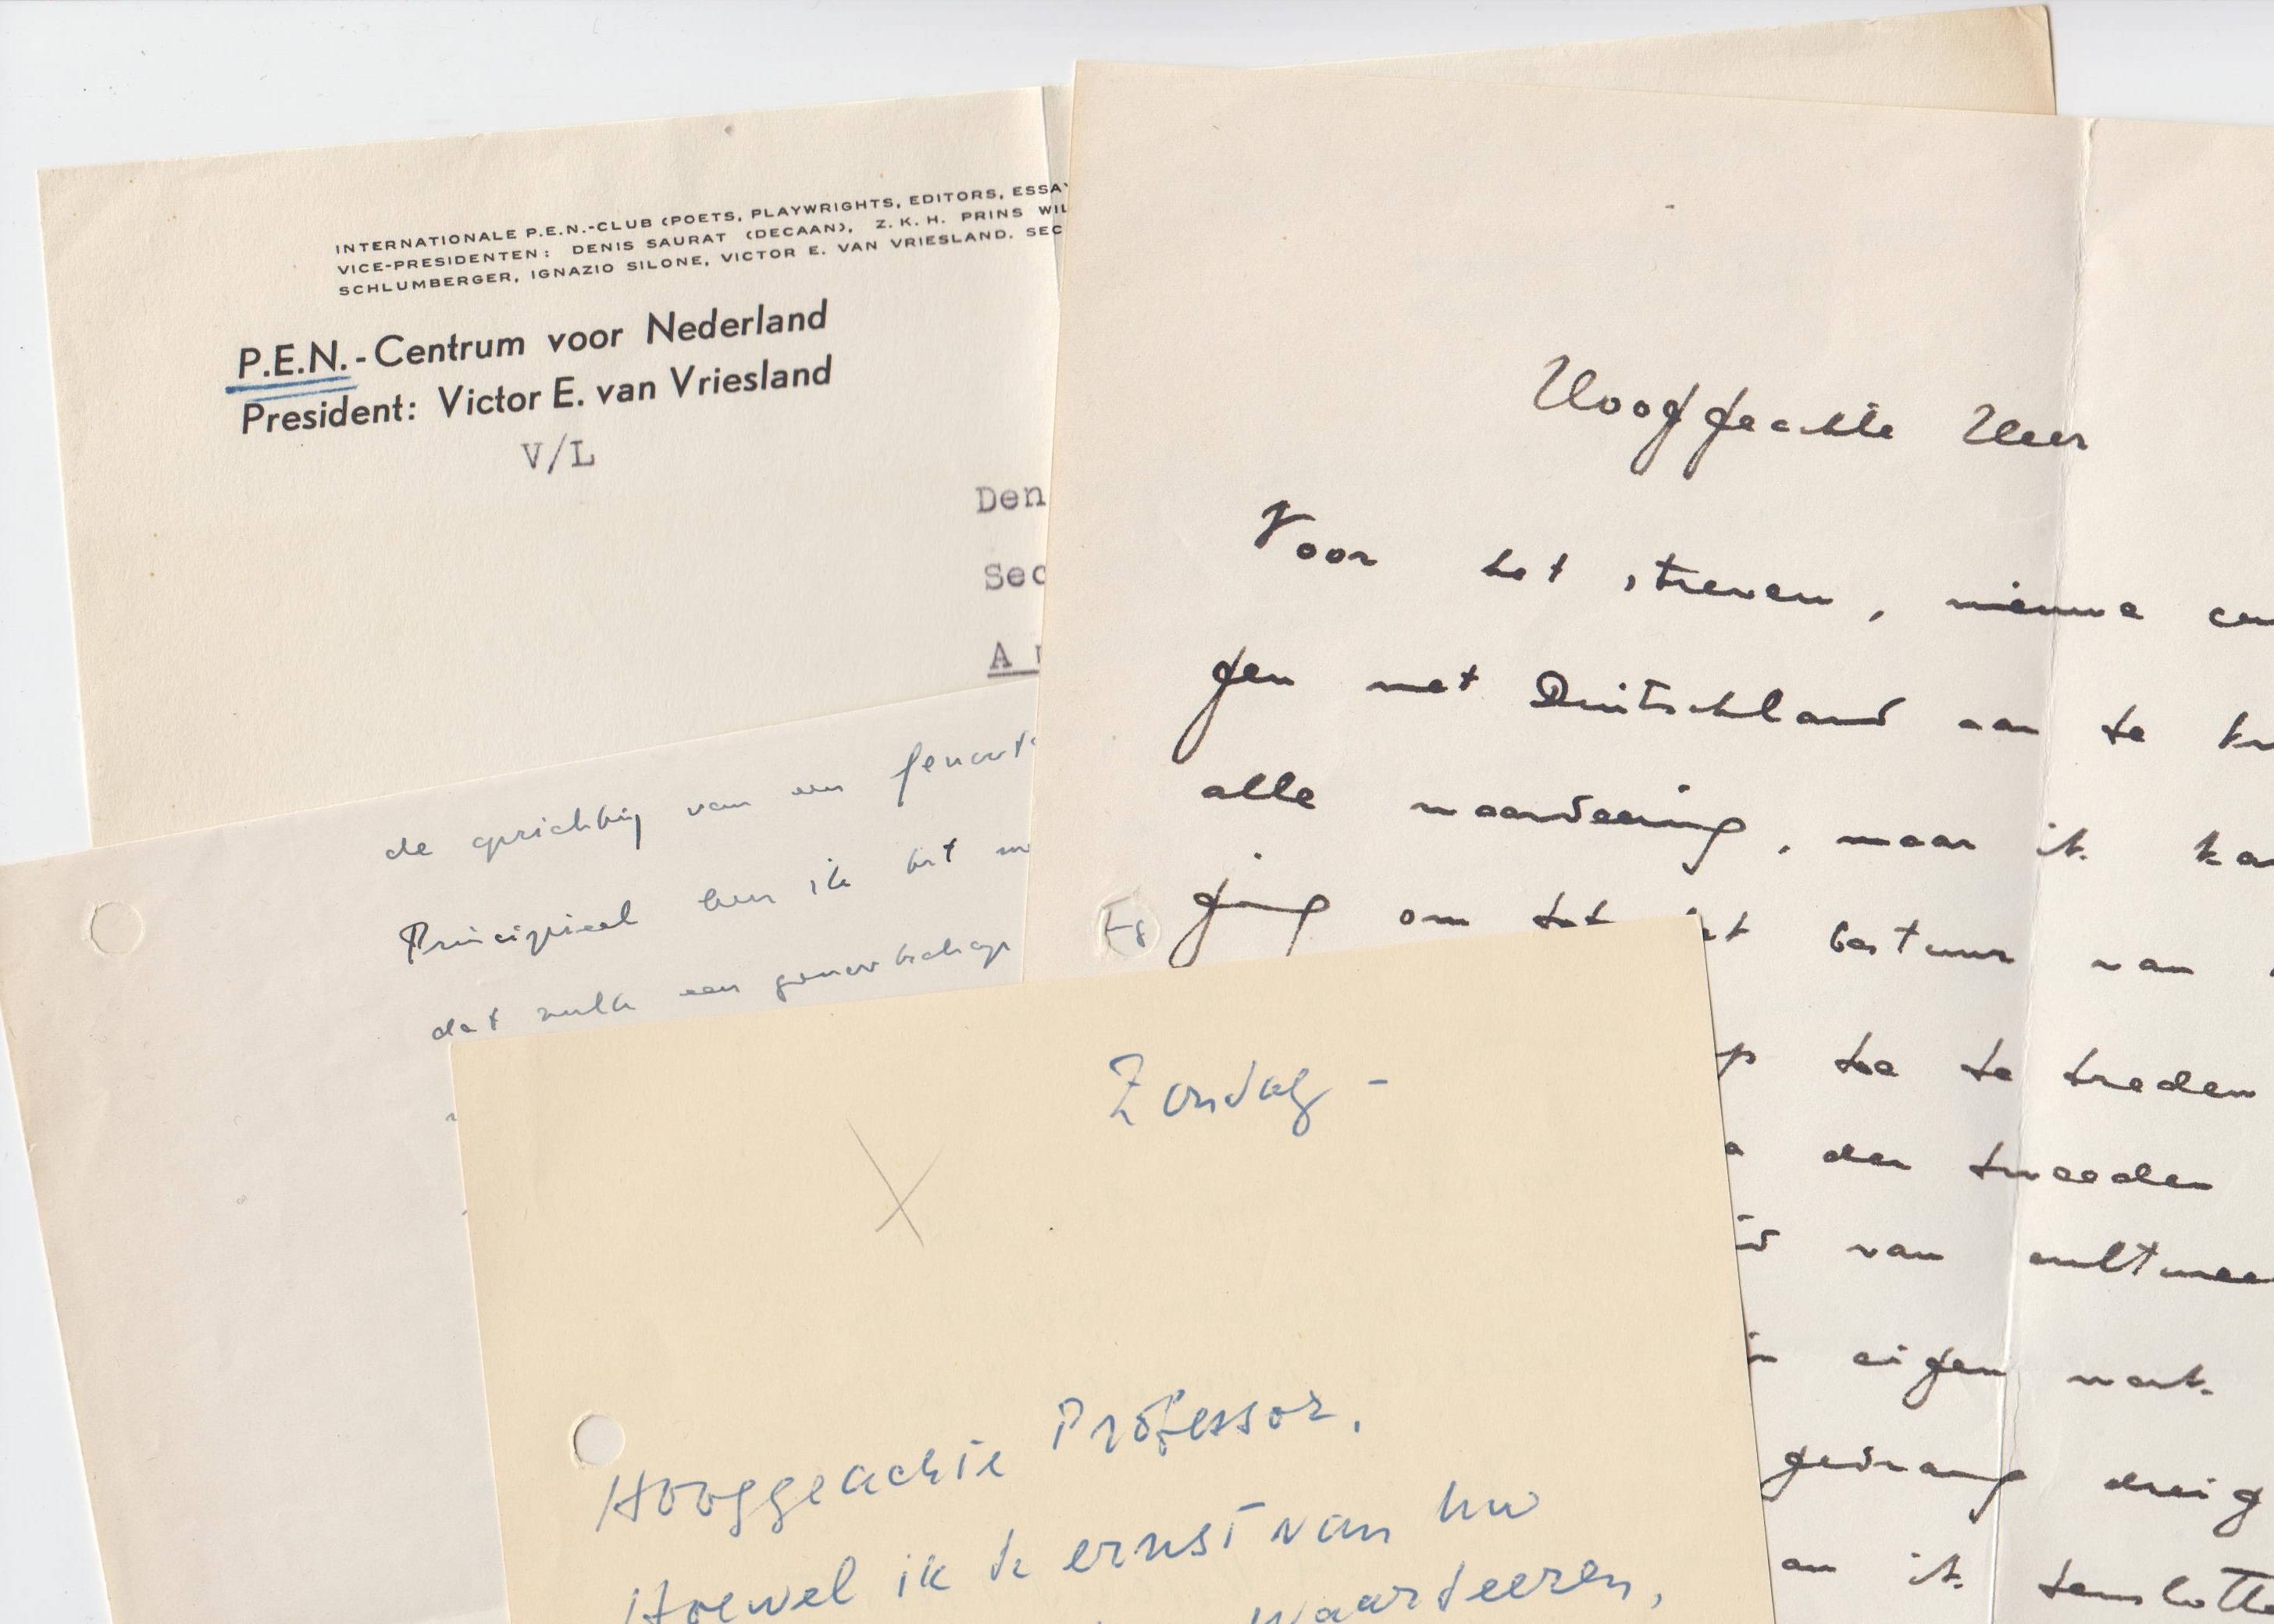 INTERNATIONALE P.E.N.-CLUB (POETS, PLAYWRIGHTS, EDITORS, ESSAY
VICE-PRESIDENTEN: DENIS SAURAT (DECAAN), Z. K. H. PRINS WIL
SCHLUMBERGER, IGNAZIO SILONE, VICTOR E. VAN VRIESLAND. SEC
P.E.N.-Centrum voor Nederland
President: Victor E. van Vriesland
V/L
Den
Sec
A
de oprichting van een genoots
Principieel ben ik het
dat zulk een genootschap
Hooggeachte Heer
Voor het streven, nieuwe
gen met Duitschland aan te
alle waardeering, maar ik
ging om tot het bestuur van
toe te treden
den tweeden
van cultureel
eigen werk.
gedrang dreig
ik tenslotte
Zondag -
Hooggeachte Professor,
Hoewel ik de ernst van Uw
waardeeren,